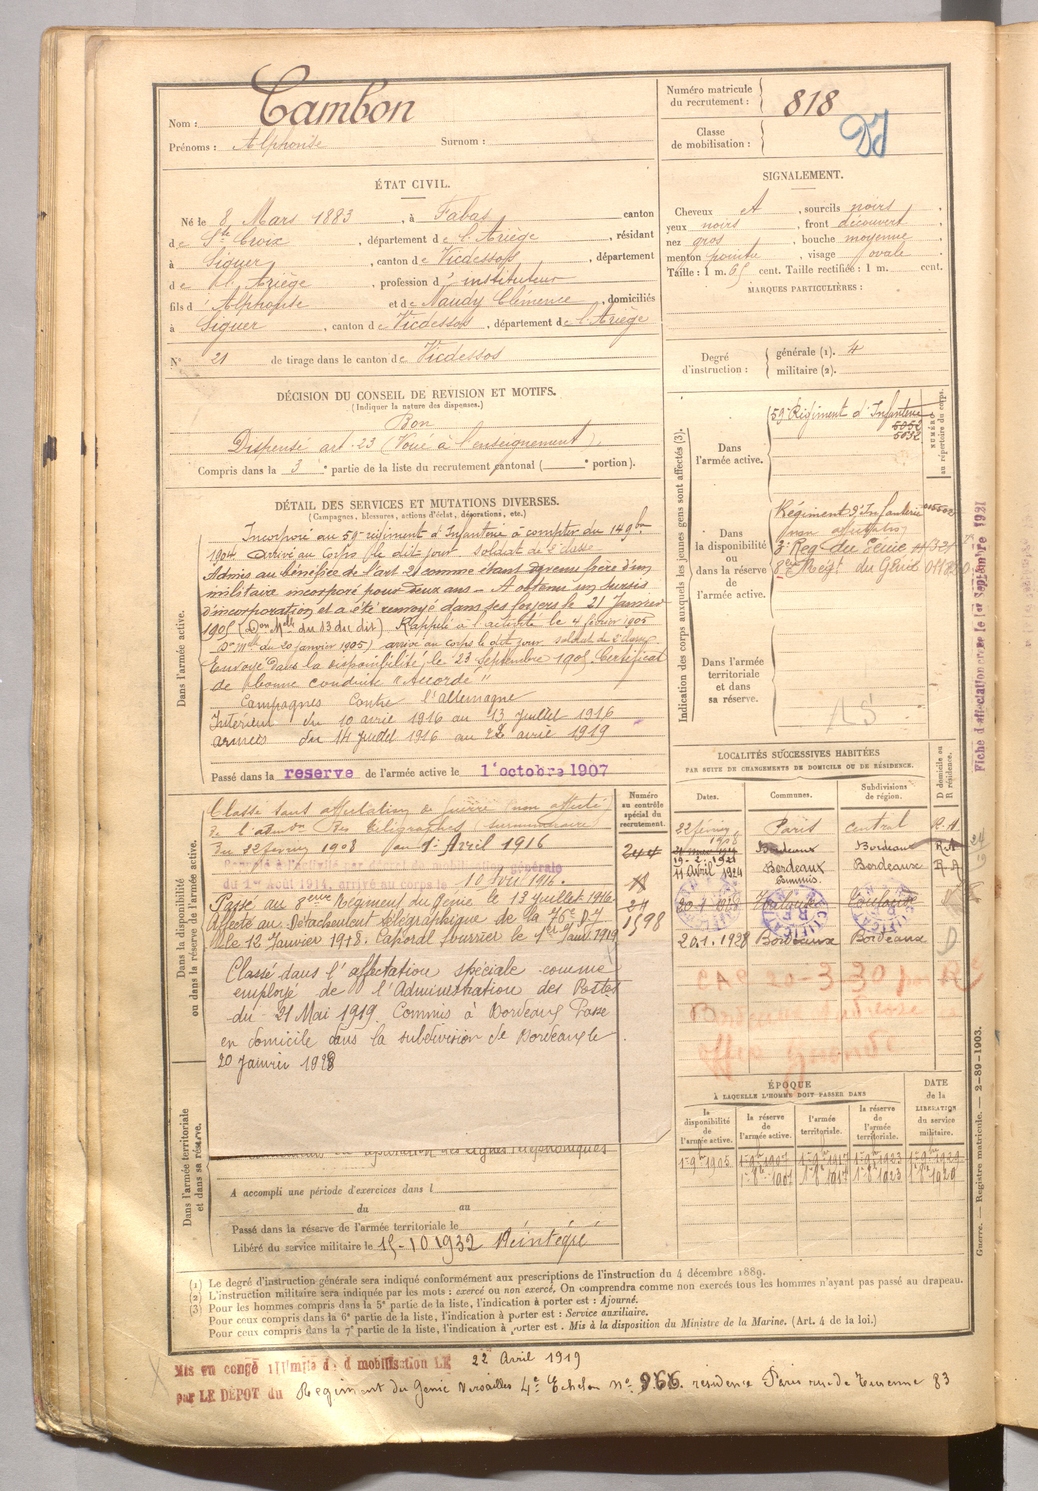 Nom : Cambon
Prénoms : Alphonse Surnom :
Numéro matricule du recrutement : 818
Classe de mobilisation :
ÉTAT CIVIL.
Né le 8 Mars 1883, à Fabas canton
de Ste Croix, département de l'Ariège, résidant
à Siguer, canton de Vicdessos, département
de l'Ariège, profession d'instituteur
fils d'Alphonse et de Naudy Clémence, domiciliés
à Siguer, canton de Vicdessos, département de l'Ariège
N° 21 de tirage dans le canton de Vicdessos
SIGNALEMENT.
Cheveux, sourcils noirs,
yeux noirs, front découvert,
nez gros, bouche moyenne,
menton pointu, visage ovale.
Taille : 1 m. 65 cent. Taille rectifiée : 1 m. cent.
MARQUES PARTICULIÈRES :
Degré d'instruction : générale (1). 4
militaire (2).
DÉCISION DU CONSEIL DE REVISION ET MOTIFS.
(Indiquer la nature des dispenses.)
Bon
Dispensé art. 23 (Voué à l'enseignement).
Compris dans la 3e partie de la liste du recrutement cantonal (e portion).
DÉTAIL DES SERVICES ET MUTATIONS DIVERSES.
(Campagnes, blessures, actions d'éclat, décorations, etc.)
Dans l'armée active.
Incorporé au 59e régiment d'Infanterie à compter du 14 9bre
1904 Arrivé au Corps le dit jour soldat de 2e classe.
Admis au bénéfice de l'art 21 comme étant devenu frère d'un
militaire incorporé pour deux ans - A obtenu un sursis
d'incorporation et a été renvoyé dans ses foyers le 21 Janvier
1905 (Don Mlle du 13 du dit) Rappelé à l'activité le 4 février 1905
(Don Mlle du 20 janvier 1905) arrivé au corps le dit jour soldat de 2e classe
Envoyé dans la disponibilité le 23 Septembre 1905. Certificat
de bonne conduite "Accordé"
Campagnes Contre l'allemagne
Intérieur du 10 avril 1916 au 13 juillet 1916
armées du 14 juillet 1916 au 22 avril 1919
Passé dans la réserve de l'armée active le 1er octobre 1907
Indication des corps auxquels les jeunes gens sont affectés (3).
NUMÉRO au répertoire du corps.
Dans l'armée active.
59e Régiment d'Infanterie
5052
5032
Dans la disponibilité ou dans la réserve de l'armée active.
Régiment d'Infanterie
non affecté
3e Reg du Génie
8e Régt du Génie
Dans l'armée territoriale et dans sa réserve.
AS
Fiche d'affectation créée le 1er Septembre 1921
Dans la disponibilité ou dans la réserve de l'armée active.
Numéro au contrôle spécial du recrutement.
Classé sans affectation de guerre (non affecté
1er Avril 1916
Rappelé à l'activité par décret de mobilisation générale
du 1er Août 1914, arrivé au corps le 10 Avril 1916.
Passé au 8ème Régiment du Génie le 13 juillet 1916
Affecté au Détachement télégraphique de la 76e D.I
le 12 Janvier 1918. Caporal fourrier le 1er Janv 1919
244
24
1598
Classé dans l'affectation spéciale comme
employé de l'Administration des Postes
du 21 Mai 1919. Commis à Bordeaux Passe
en domicile dans la subdivision de Bordeaux le
20 janvier 1928
LOCALITÉS SUCCESSIVES HABITÉES
PAR SUITE DE CHANGEMENTS DE DOMICILE OU DE RÉSIDENCE.
Dates. Communes. Subdivisions de région. D domicile ou R résidence.
22 février 1908 Paris central R.A
Bordeaux Bordeaux R.A
19-2-1921
11 Avril 1924 Bordeaux Bordeaux R.A
commis.
Toulouse Toulouse
20.1.1928 Bordeaux Bordeaux D
20-3-30
Dans l'armée territoriale et dans sa réserve.
A accompli une période d'exercices dans l
du au
Passé dans la réserve de l'armée territoriale le
Libéré du service militaire le 15-10 1932 Réintégré
ÉPOQUE
À LAQUELLE L'HOMME DOIT PASSER DANS
DATE de la LIBÉRATION du service militaire.
la disponibilité de l'armée active. la réserve de l'armée active. l'armée territoriale. la réserve de l'armée territoriale.
Guerre. — Registre matricule. — 2-89-1903.
(1) Le degré d'instruction générale sera indiqué conformément aux prescriptions de l'instruction du 4 décembre 1889.
(2) L'instruction militaire sera indiquée par les mots : exercé ou non exercé. On comprendra comme non exercés tous les hommes n'ayant pas passé au drapeau.
(3) Pour les hommes compris dans la 5e partie de la liste, l'indication à porter est : Ajourné.
Pour ceux compris dans la 6e partie de la liste, l'indication à porter est : Service auxiliaire.
Pour ceux compris dans la 7e partie de la liste, l'indication à porter est : Mis à la disposition du Ministre de la Marine. (Art. 4 de la loi.)
Mis en congé illimité de démobilisation LE 22 Avril 1919
par LE DÉPÔT du Régiment du Génie Versailles 4e Echelon n° 966. résidence Paris rue de Turenne 83